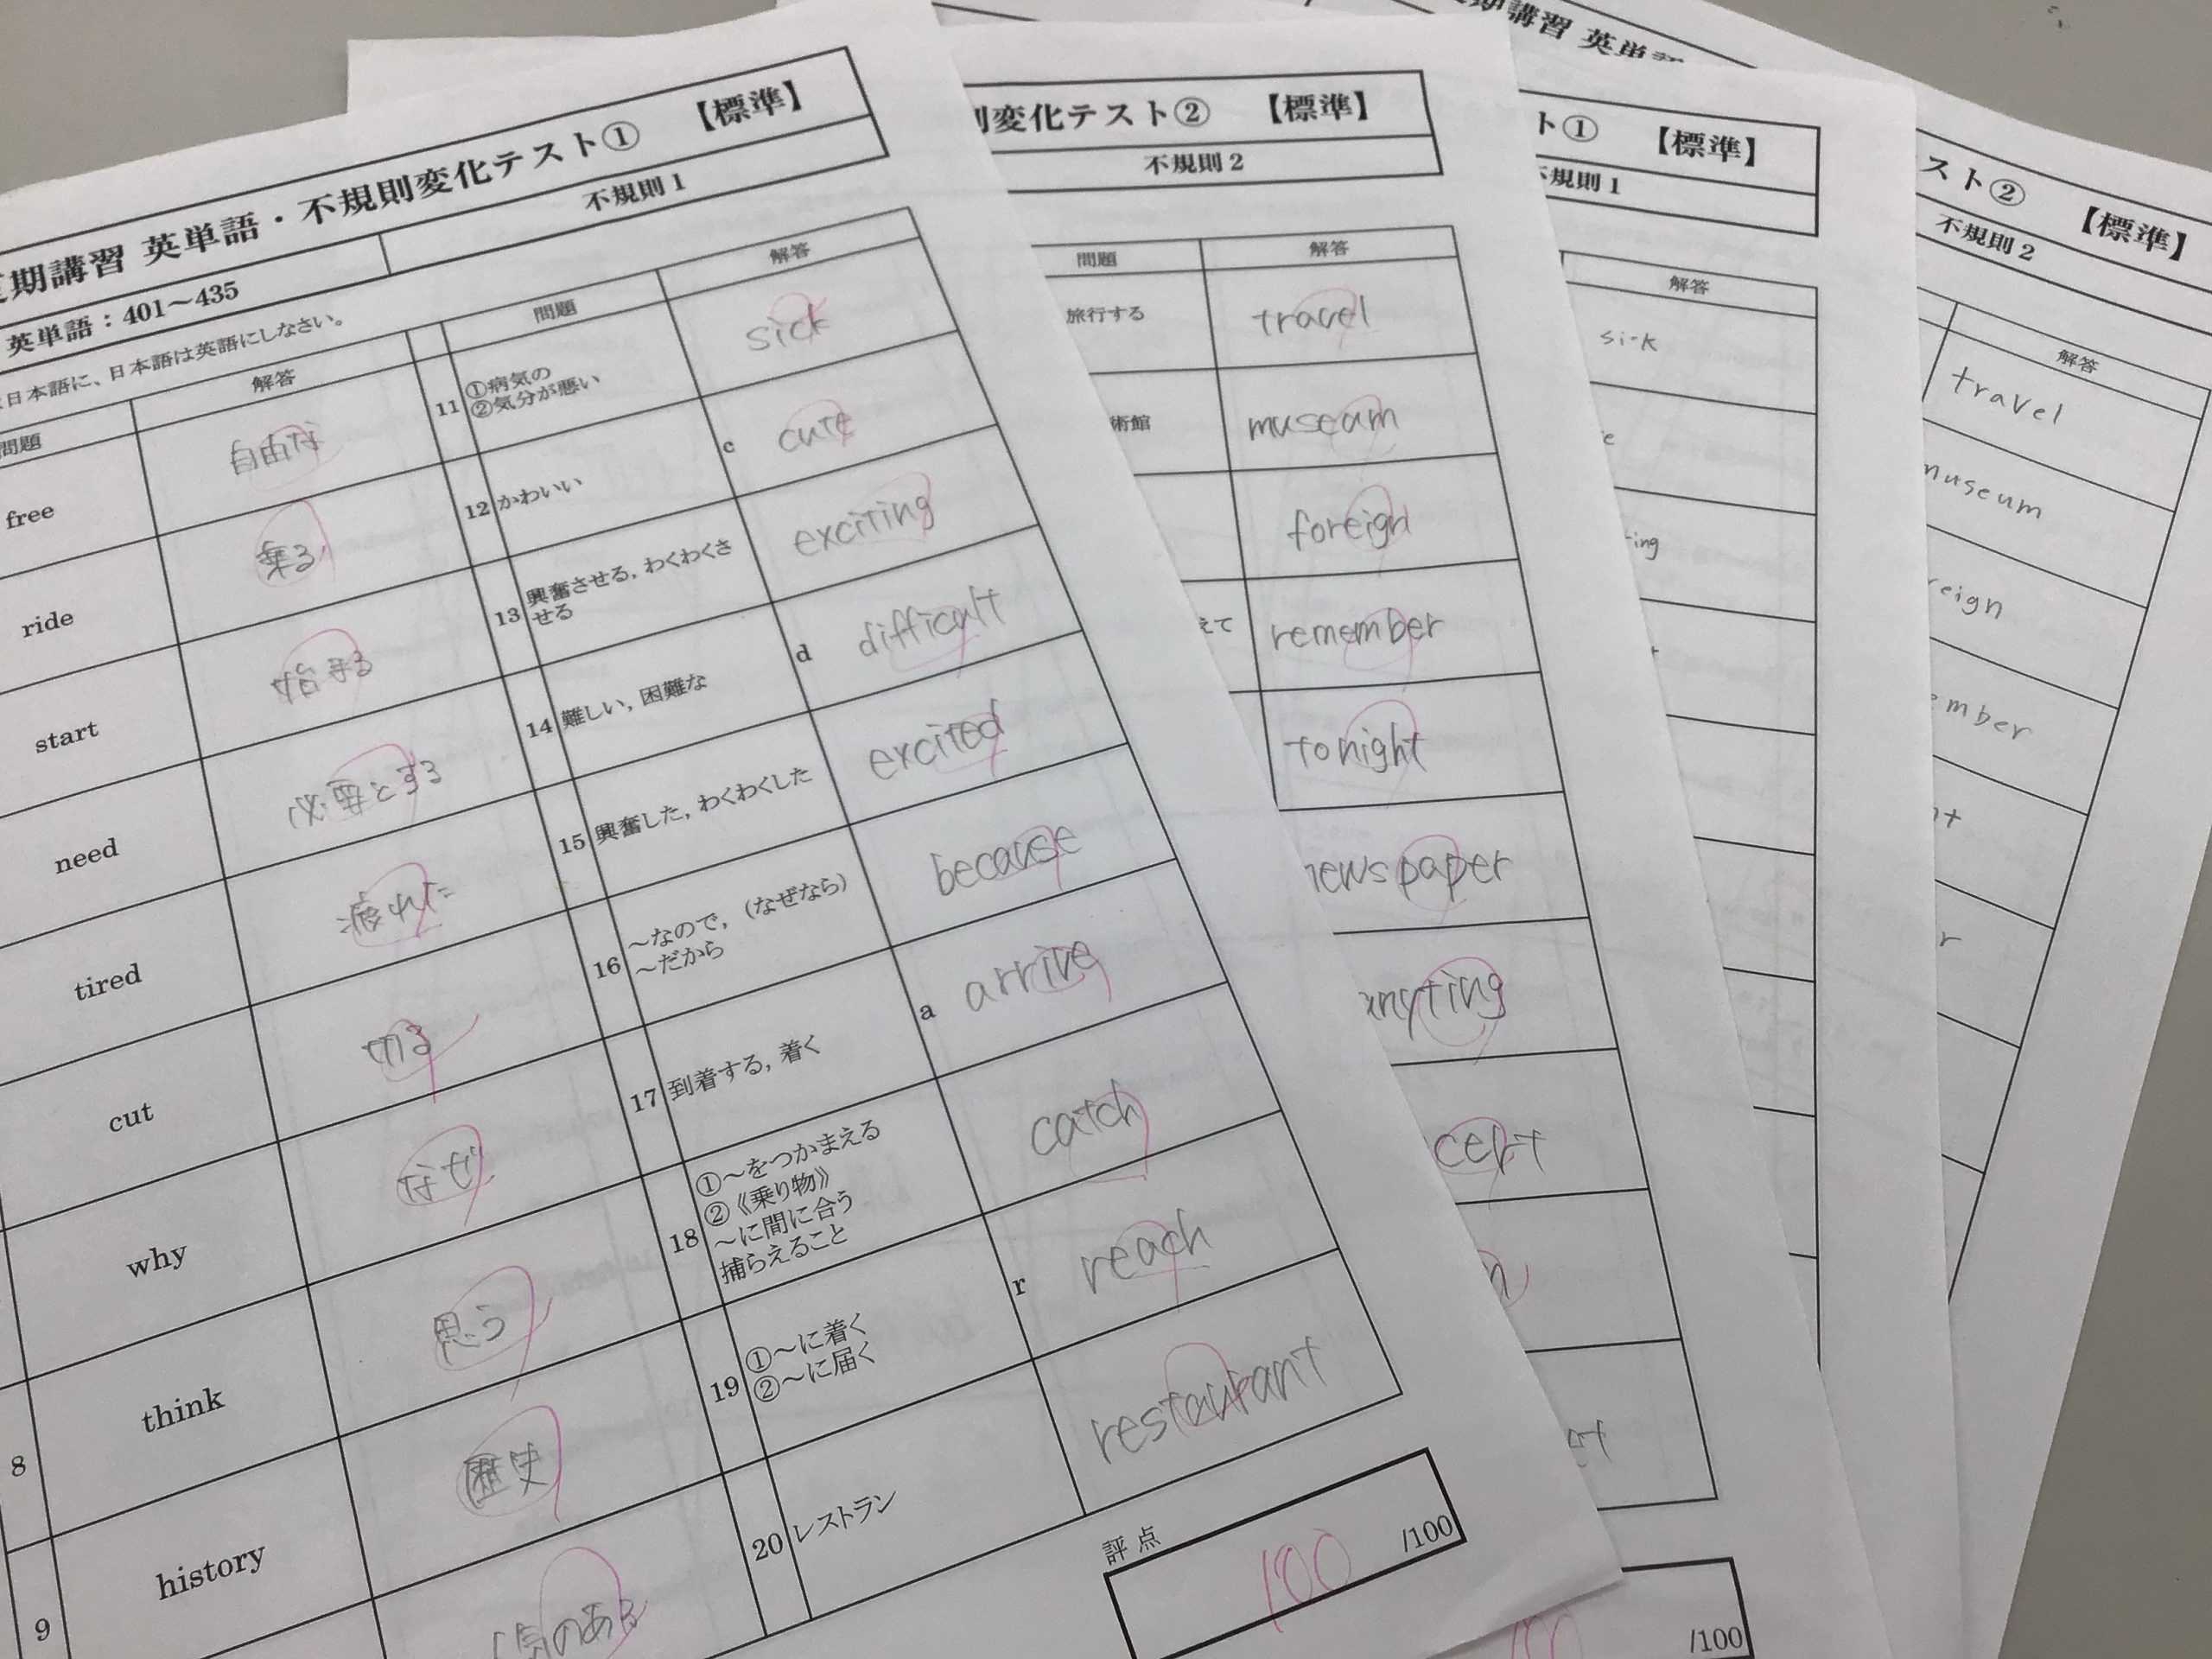 期講習 英単語・不規則変化テスト① 【標準】
英単語：401～435 不規則1
日本語に、日本語は英語にしなさい。
問題 解答 問題 解答
free 自由な
ride 乗る
start 始まる
need 必要とする
tired 疲れた
cut 切る
why なぜ
8 think 思う
9 history 歴史
気のある
11 ①病気の sick
②気分が悪い
12 かわいい c cute
13 興奮させる，わくわくさ exciting
せる
14 難しい，困難な d difficult
15 興奮した，わくわくした excited
16 ～なので，（なぜなら） because
～だから
17 到着する，着く a arrive
18 ①～をつかまえる catch
②《乗り物》
～に間に合う
捕らえること
19 ①～に着く r reach
②～に届く
20 レストラン restaurant
評点
100 /100
変化テスト② 【標準】
不規則2
問題 解答
旅行する travel
術館 museum
foreign
えて remember
tonight
ewspaper
nyting
cert
/100
期講習 英単
ト① 【標準】
不規則1
解答
sick
e
ing
スト② 【標準】
不規則2
解答
travel
museum
reign
ember
t
r